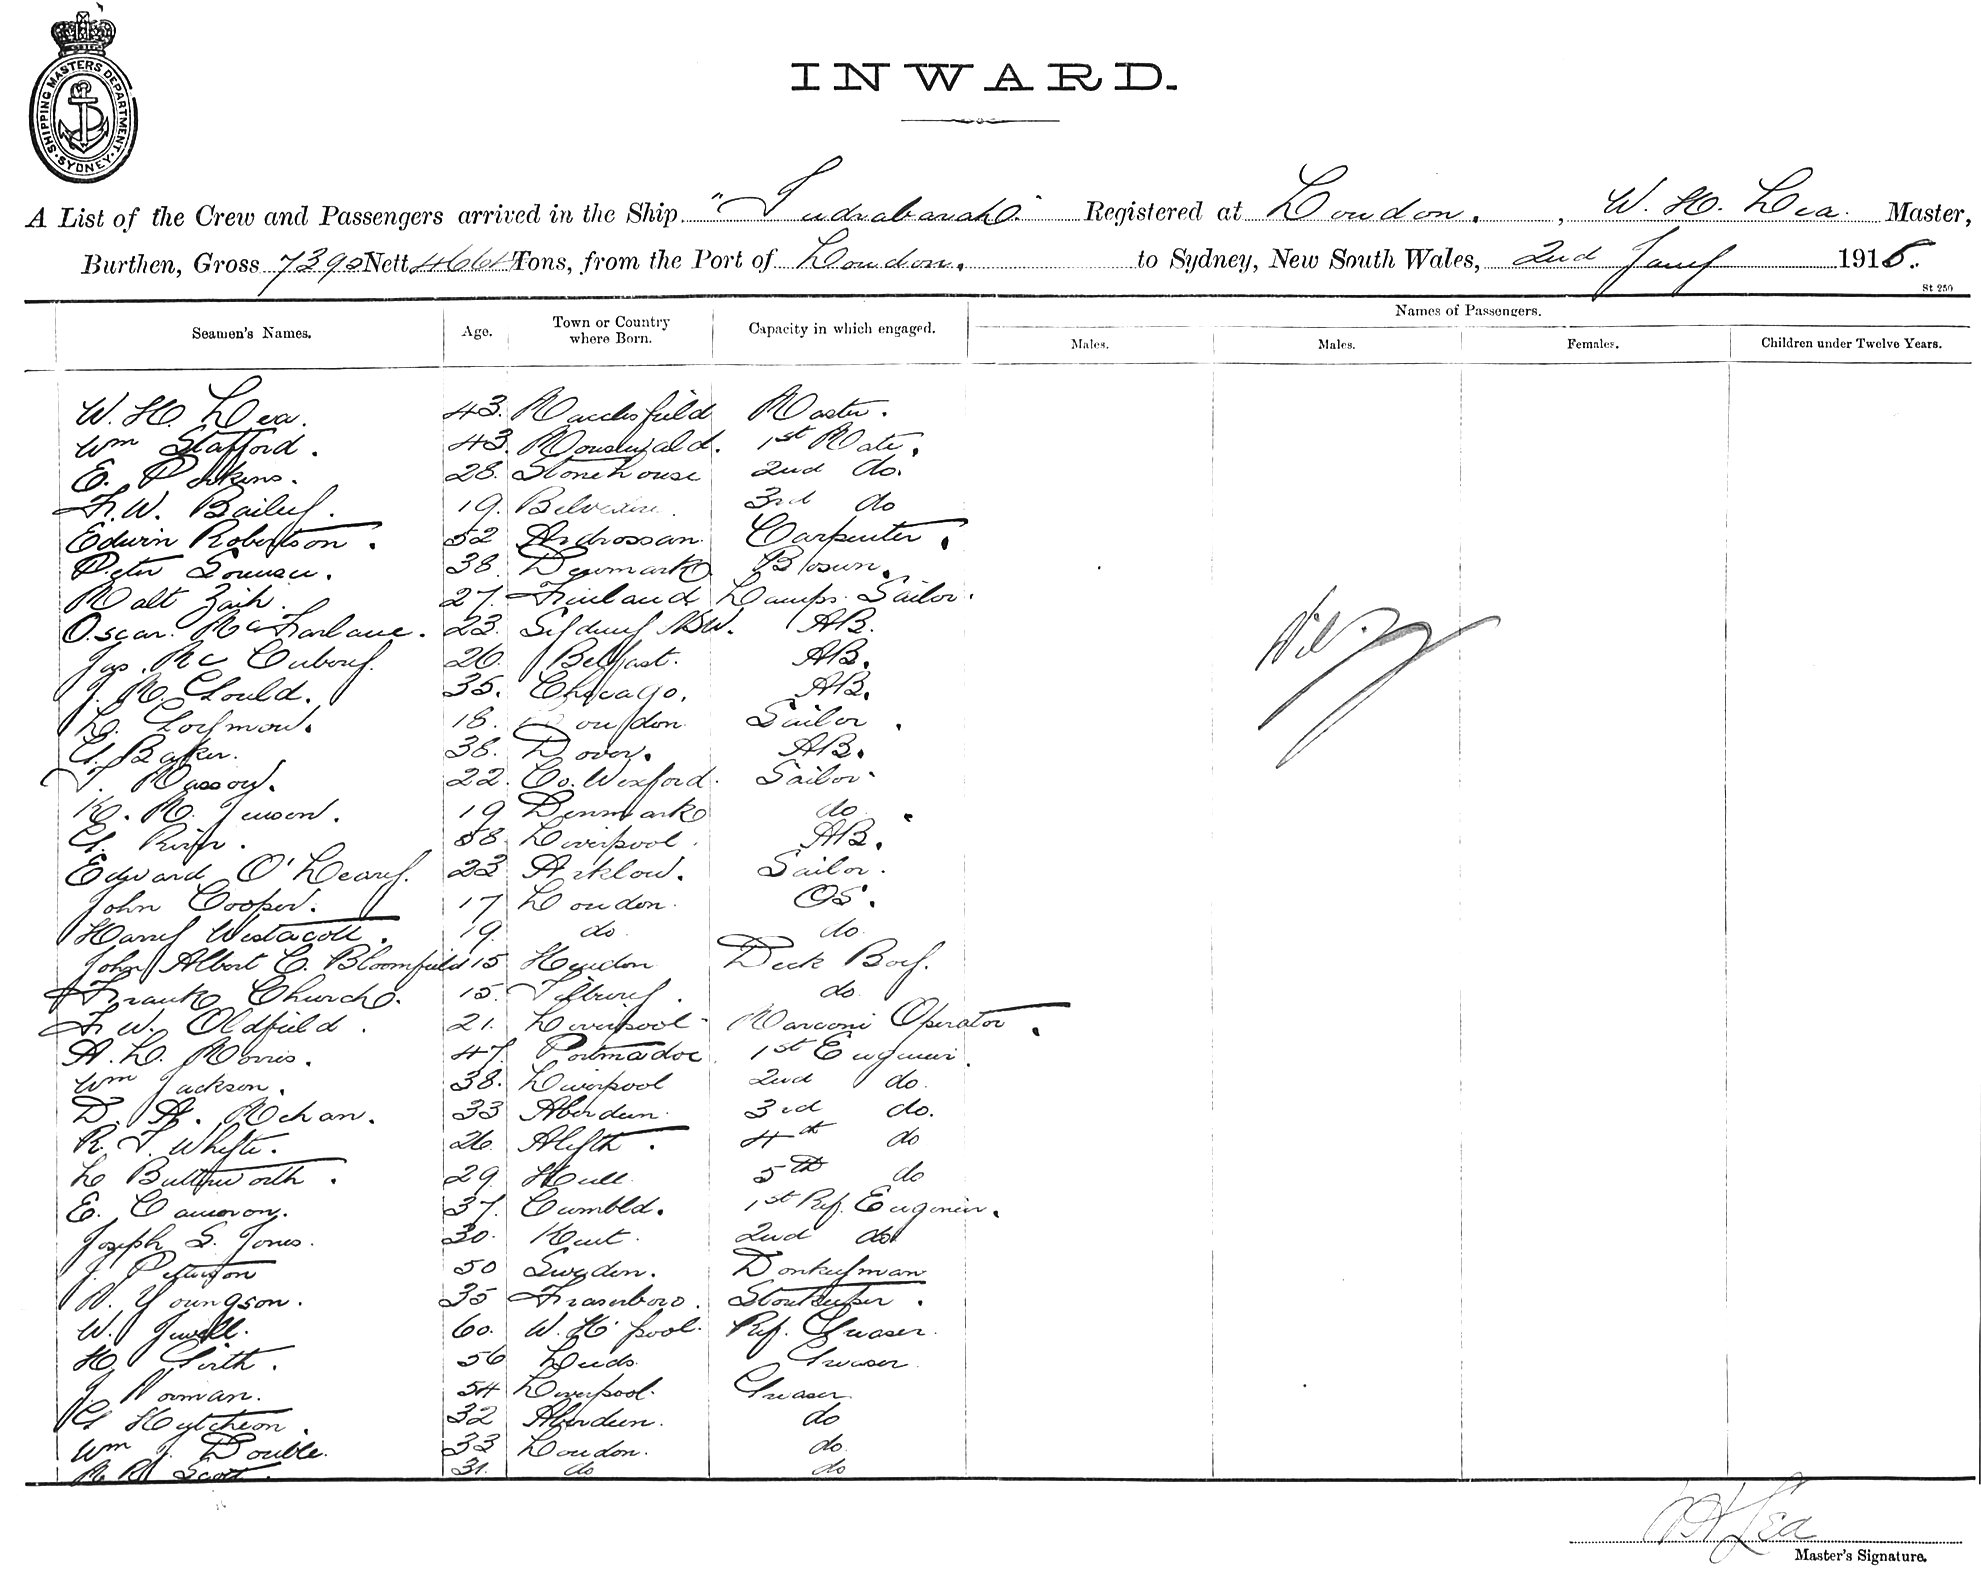 SHIPPING MASTERS DEPARTMENT. SYDNEY
INWARD.
A List of the Crew and Passengers arrived in the Ship "Indrabarah" Registered at London. , W. H. Lea. Master,
Burthen, Gross 7395 Nett 4661 Tons, from the Port of London. to Sydney, New South Wales, 2nd Jany 1915.
St 250
Names of Passengers.
Seamen's Names. Age. Town or Country where Born. Capacity in which engaged. Males. Males. Females. Children under Twelve Years.
W. H. Lea. 43. Macclesfield Master.
Wm Stafford. 43. 1st Mate.
E. Perkins. 28. Stonehouse 2nd do.
F. W. Bailey. 19. Belvedere. 3rd do
Edwin Robertson. 52 Ardrossan. Carpenter.
Peter 38. Denmark Bosun.
Malt 27. Finland Lamps. Sailor.
Oscar. McFarlane. 23. Sydney NSW. AB.
Jas. Mc 26. Belfast. AB.
J. M. Gould. 35. Chicago. AB.
L. 18. London Sailor.
G. Baker. 38. Dover. AB.
T. 22. Co. Wexford. Sailor.
K. M. Jenson. 19 Denmark do.
G. 58. Liverpool. AB.
Edward O'Leary. 23 Arklow. Sailor.
John Cooper. 17 London. OS.
Harry Westacott. 19. do. do.
John Albert C. Bloomfield 15 Hendon Deck Boy.
Frank Church. 15. Tilbury. do.
F. W. Oldfield. 21. Liverpool Marconi Operator.
A. L. Morris. 47. Portmadoc 1st Engineer.
Wm Jackson. 38. Liverpool 2nd do.
D. A. Mehan. 33 Aberdeen. 3rd do.
R. T. Whyte. 26. Alyth. 4th do
L Butterworth. 29. Hull 5th do
E. Cameron. 37. Cumbld. 1st Ref. Engineer.
Joseph S. Jones. 30. Kent. 2nd do
J. Petterson 50 Sweden. Donkeyman
N. Youngson. 35 Fraserboro. Storekeeper.
W. Jewell. 60. W. H'pool. Ref. Greaser.
H. Firth. 56 Leeds. Greaser.
J. Norman. 54 Liverpool. Greaser.
G Hutcheon. 32 Aberdeen. do
Wm J. Double. 33 London. do.
Scott. 31. do do
Nil.
W H Lea
Master's Signature.